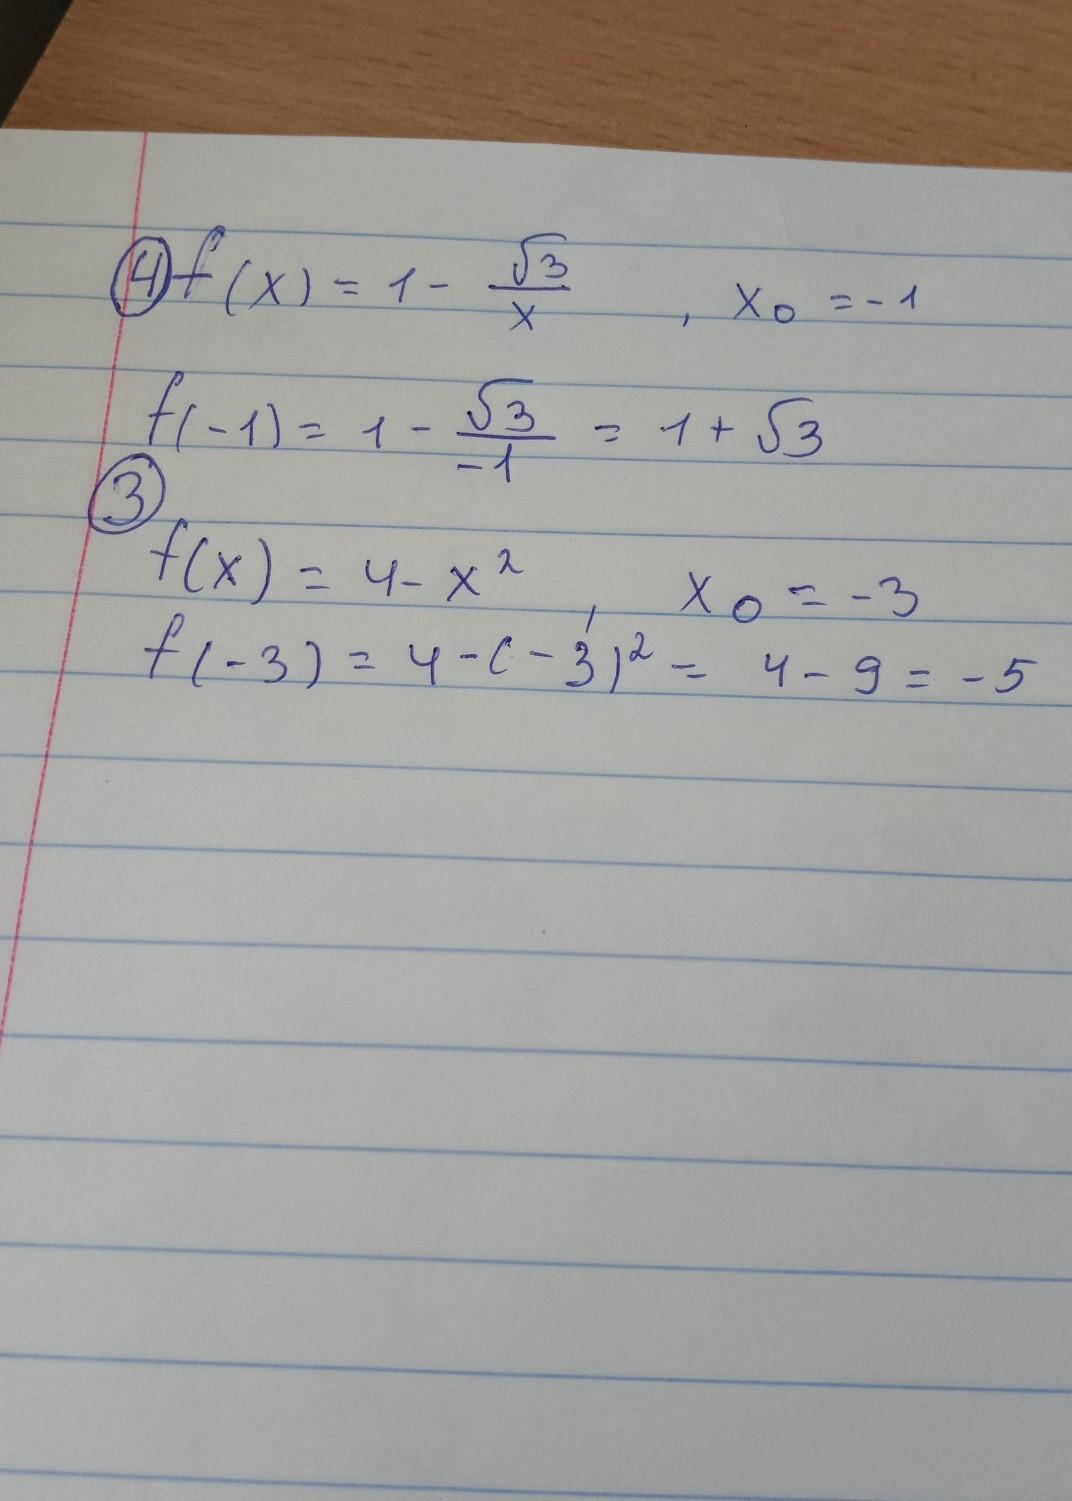 ④ f(x) = 1 - √3/x , x₀ = -1
f(-1) = 1 - √3/-1 = 1 + √3
③
f(x) = 4 - x² , x₀ = -3
f(-3) = 4 - (-3)² = 4 - 9 = -5